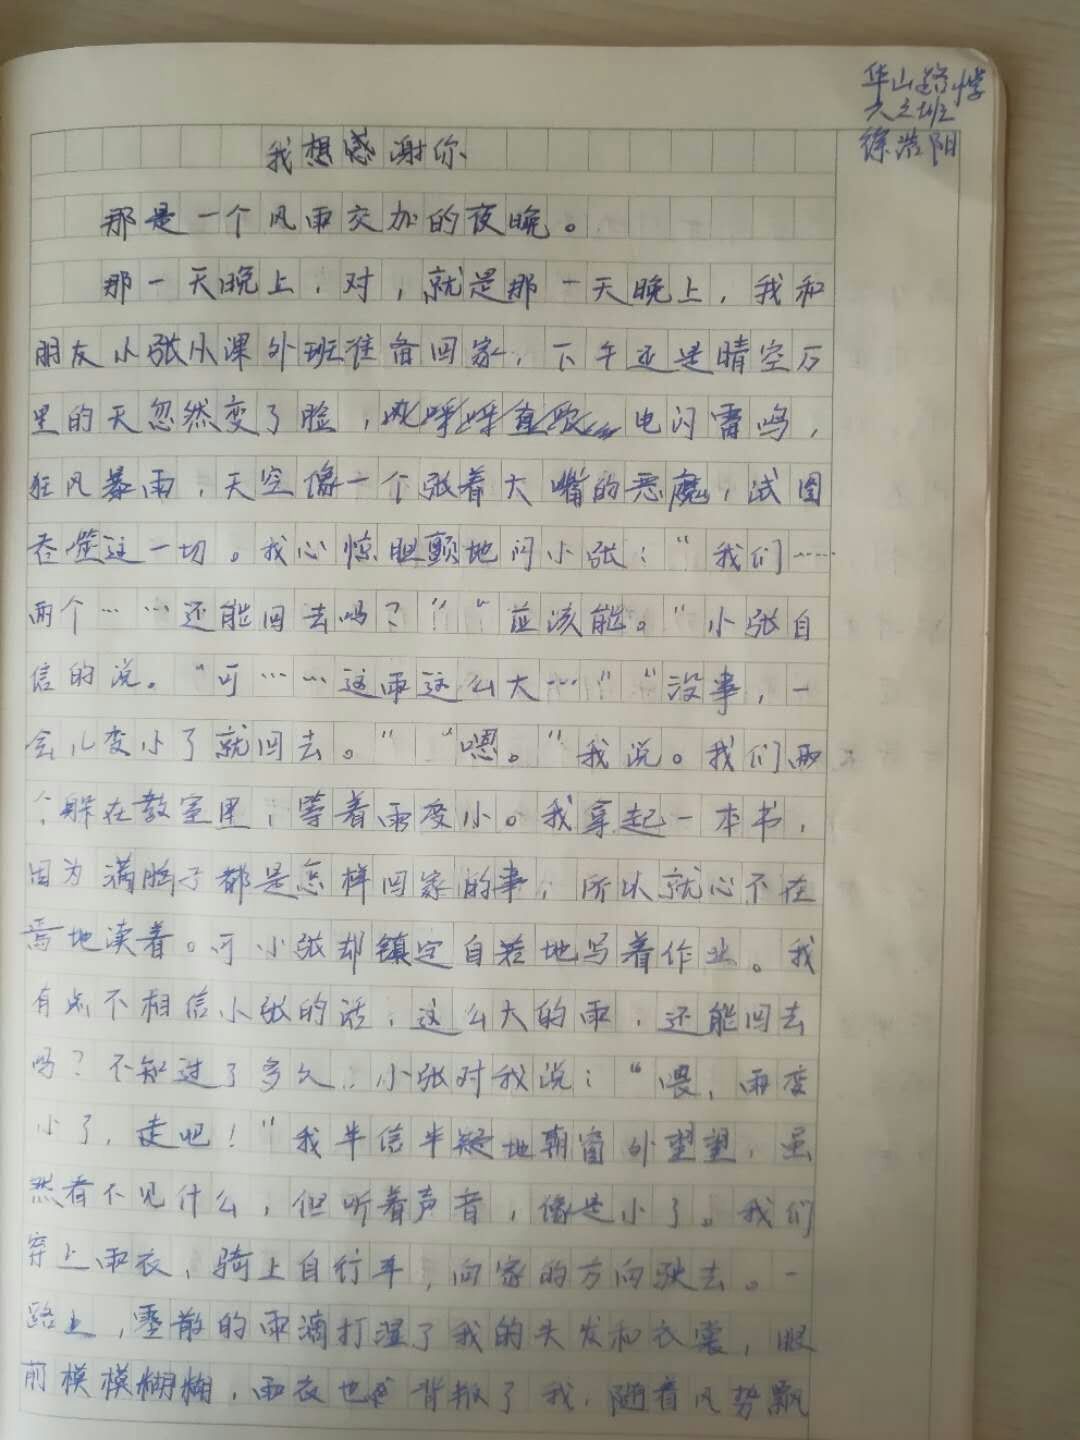 华山路小学
六之班
徐浩阳
我想感谢你
那是一个风雨交加的夜晚。
那一天晚上,对,就是那一天晚上,我和
朋友小张从课外班准备回家,下午还是晴空万
里的天忽然变了脸,电闪雷鸣,
狂风暴雨,天空像一个张着大嘴的恶魔,试图
吞噬这一切。我心惊胆颤地问小张:“我们……
两个……还能回去吗?”“应该能。”小张自
信的说。“可……这雨这么大…”“没事,一
会儿变小了就回去。”“嗯。”我说。我们两
个躲在教室里,等着雨变小。我拿起一本书,
因为满脑子都是怎样回家的事,所以就心不在
焉地读着。可小张却镇定自若地写着作业。我
有点不相信小张的话,这么大的雨,还能回去
吗?不知过了多久,小张对我说:“喂,雨变
小了,走吧!”我半信半疑地朝窗外望望,虽
然看不见什么,但听着声音,像是小了。我们
穿上雨衣,骑上自行车,向家的方向驶去。一
路上,零散的雨滴打湿了我的头发和衣裳,眼
前模模糊糊,雨衣也背叛了我,随着风势飘